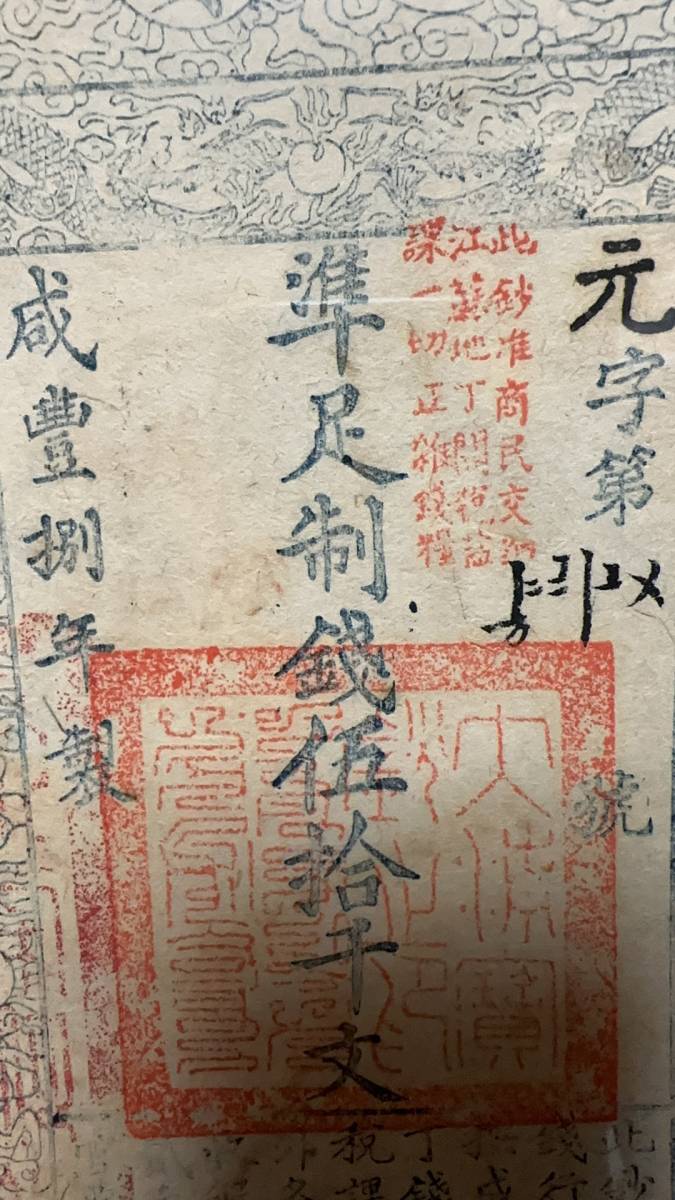 元字第號
此鈔准商民交納
江蘇地丁關稅鹽
課一切正雜錢糧
準足制錢伍拾千文
咸豐捌年製
大清寶
鈔之印
此鈔
錢行
按成
丁錢
稅課
外各